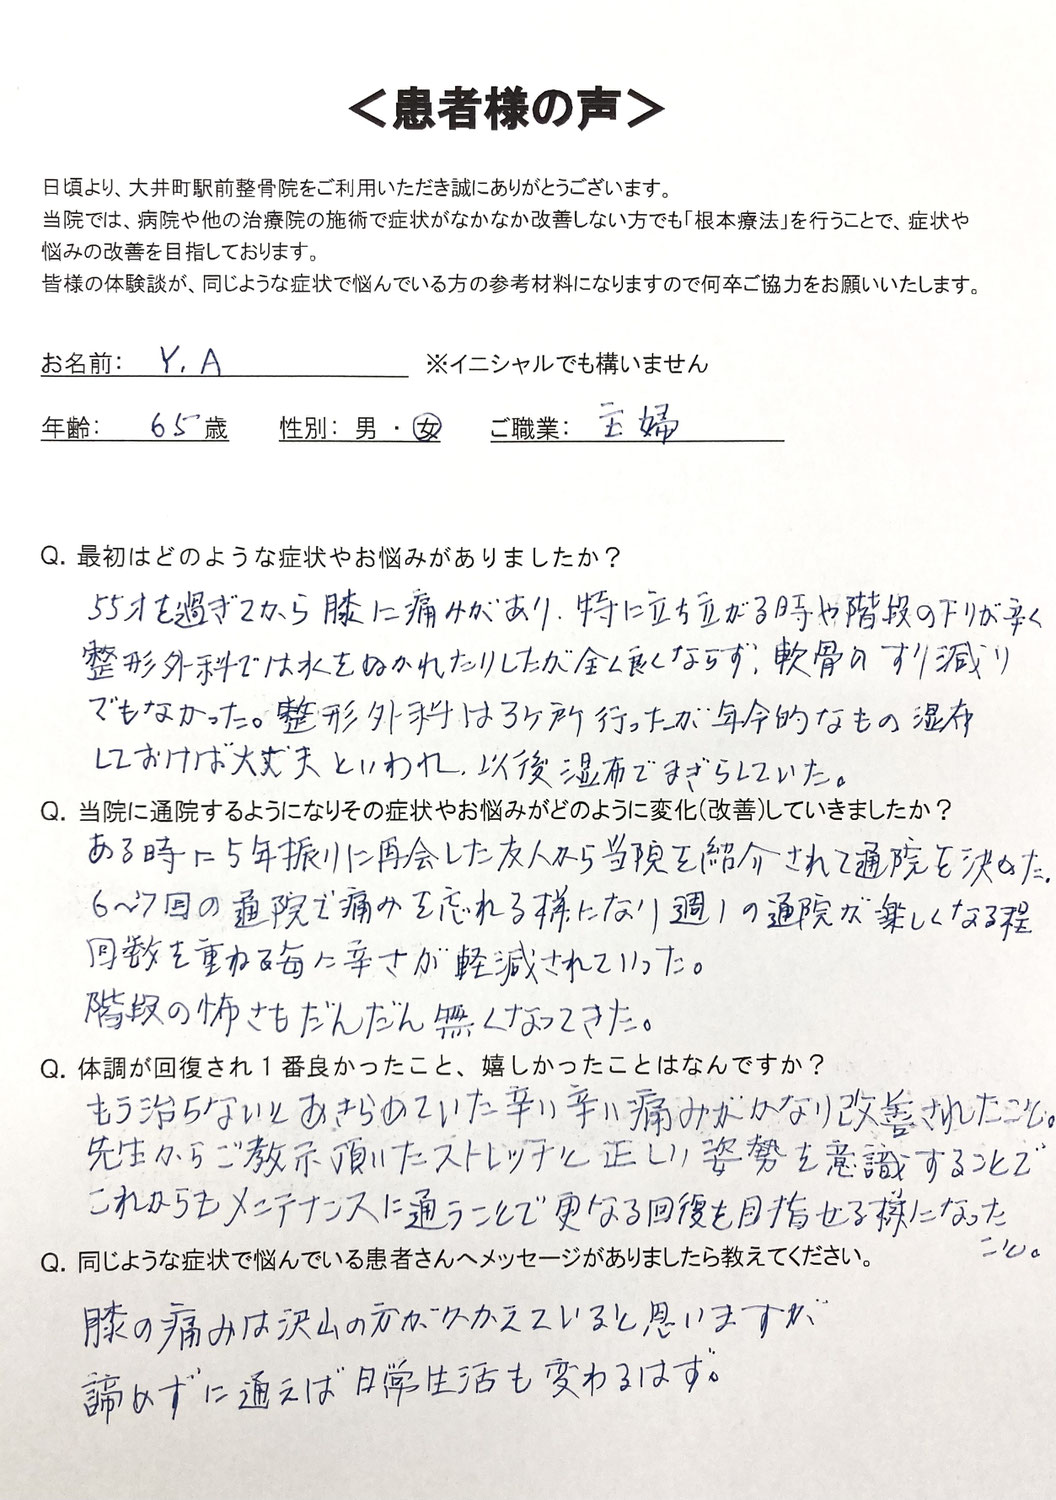 ＜患者様の声＞
日頃より、大井町駅前整骨院をご利用いただき誠にありがとうございます。
当院では、病院や他の治療院の施術で症状がなかなか改善しない方でも「根本療法」を行うことで、症状や
悩みの改善を目指しております。
皆様の体験談が、同じような症状で悩んでいる方の参考材料になりますので何卒ご協力をお願いいたします。
お名前： Y. A ※イニシャルでも構いません
年齢： 65歳 性別： 男 ・ 女 ご職業： 主婦
Q. 最初はどのような症状やお悩みがありましたか？
55才を過ぎてから膝に痛みがあり、特に立ち立がる時や階段の下りが辛く
整形外科では水をぬかれたりしたが全く良くならず、軟骨のすり減り
でもなかった。整形外科は3ヶ所行ったが年令的なもの湿布
しておけば大丈夫といわれ、以後湿布でまぎらしていた。
Q. 当院に通院するようになりその症状やお悩みがどのように変化(改善)していきましたか？
ある時に5年振りに再会した友人から当院を紹介されて通院を決めた。
6〜7回の通院で痛みを忘れる様になり週1の通院が楽しくなる程
回数を重ねる毎に辛さが軽減されていった。
階段の怖さもだんだん無くなってきた。
Q. 体調が回復され１番良かったこと、嬉しかったことはなんですか？
もう治らないとあきらめていた辛い辛い痛みがかなり改善されたこと。
先生からご教示頂いたストレッチと正しい姿勢を意識することで
これからもメンテナンスに通うことで更なる回復を目指せる様になった
こと。
Q. 同じような症状で悩んでいる患者さんへメッセージがありましたら教えてください。
膝の痛みは沢山の方がかかえていると思いますが
諦めずに通えば日常生活も変わるはず。